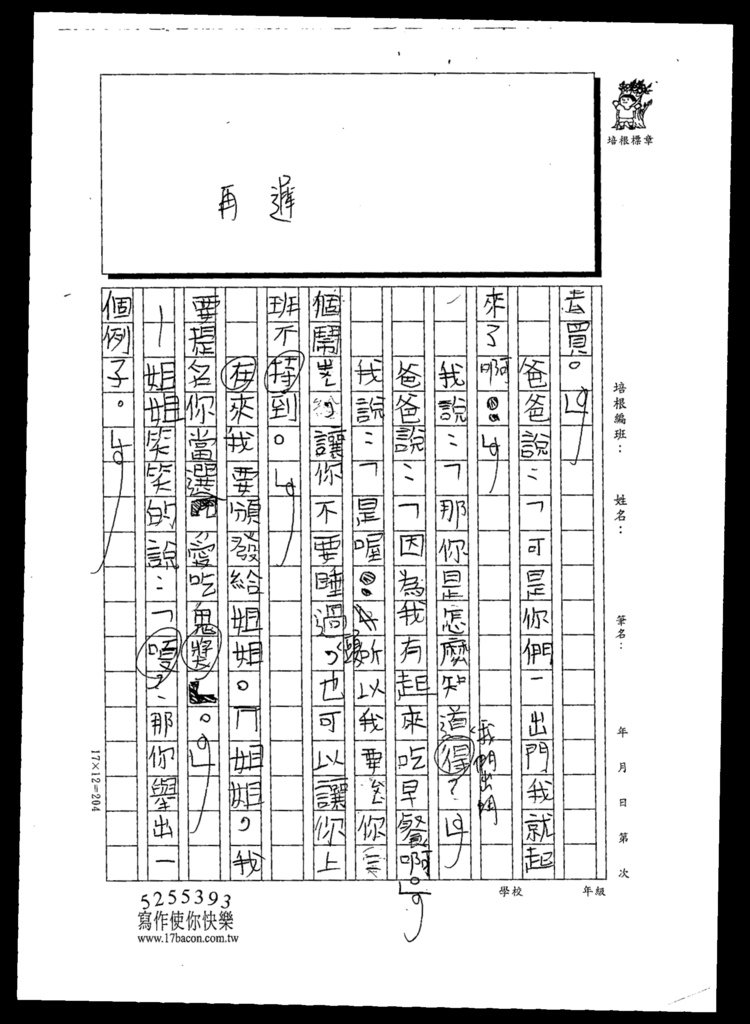 培根標章
再 遲
去買。」
爸爸說:「可是你們一出門我就起
來了啊。」
我說:「那你是怎麼知道得?」
我們出門
爸爸說:「因為我有起來吃早餐啊。」
我說:「是喔。所以我要給你三
個鬧鐘,讓你不要睡過頭,也可以讓你上
班不持到。」
在來我要頒發給姐姐。「姐姐,我
要提名你當選愛吃鬼獎。」
姐姐笑笑的說:「嗄?那你舉出一
個例子。」
培根編班:
姓名:
筆名:
年 月 日 第 次
17×12=204
學校
年級
5255393
寫作使你快樂
www.17bacon.com.tw